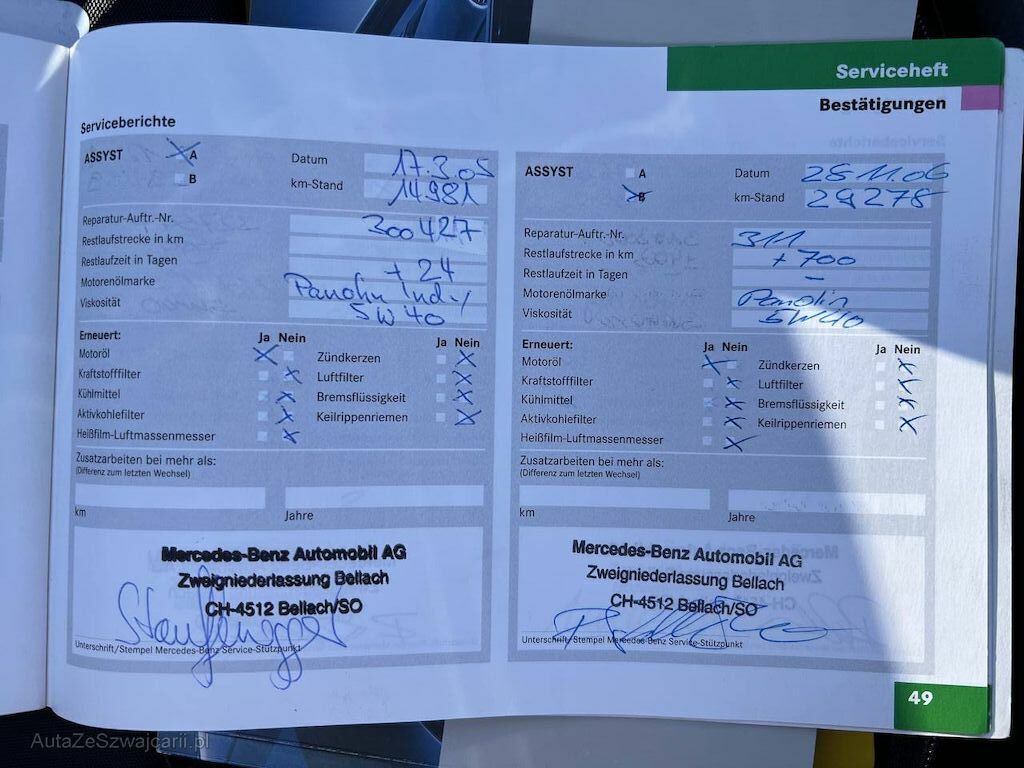 Serviceheft
Bestätigungen
Serviceberichte
ASSYST
A
B
Datum 17.3.05
km-Stand 14981
Reparatur-Auftr.-Nr. 300427
Restlaufstrecke in km
Restlaufzeit in Tagen + 24
Motorenölmarke Panolin Indy
Viskosität 5W40
Erneuert:
Ja Nein
Ja Nein
Motoröl
Zündkerzen
Kraftstofffilter
Luftfilter
Kühlmittel
Bremsflüssigkeit
Aktivkohlefilter
Keilrippenriemen
Heißfilm-Luftmassenmesser
Zusatzarbeiten bei mehr als:
(Differenz zum letzten Wechsel)
km
Jahre
Mercedes-Benz Automobil AG
Zweigniederlassung Bellach
CH-4512 Bellach/SO
Unterschrift/Stempel Mercedes-Benz Service-Stützpunkt
ASSYST
A
B
Datum 28.11.06
km-Stand 29278
Reparatur-Auftr.-Nr. 311
Restlaufstrecke in km + 700
Restlaufzeit in Tagen –
Motorenölmarke Panolin
Viskosität 5W40
Erneuert:
Ja Nein
Ja Nein
Motoröl
Zündkerzen
Kraftstofffilter
Luftfilter
Kühlmittel
Bremsflüssigkeit
Aktivkohlefilter
Keilrippenriemen
Heißfilm-Luftmassenmesser
Zusatzarbeiten bei mehr als:
(Differenz zum letzten Wechsel)
km
Jahre
Mercedes-Benz Automobil AG
Zweigniederlassung Bellach
CH-4512 Bellach/SO
Unterschrift/Stempel Mercedes-Benz Service-Stützpunkt
49
AutaZeSzwajcarii.pl